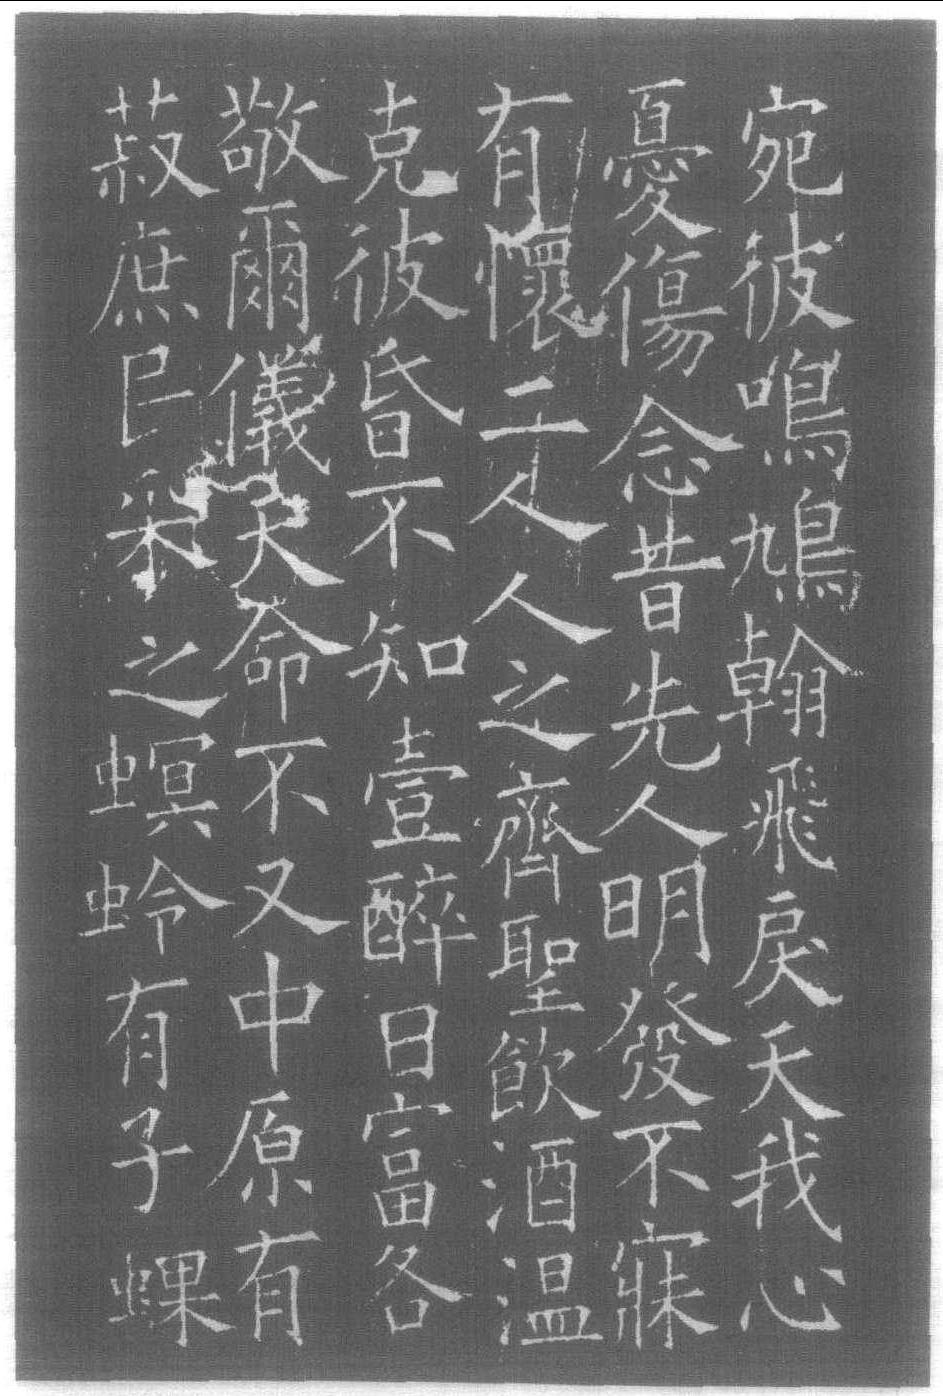 宛彼鳴鳩翰飛戾天我心
憂傷念昔先人明發不寐
有懷二人人之齊聖飲酒温
克彼昏不知壹醉日富各
敬爾儀天命不又中原有
菽庶民采之螟蛉有子蜾